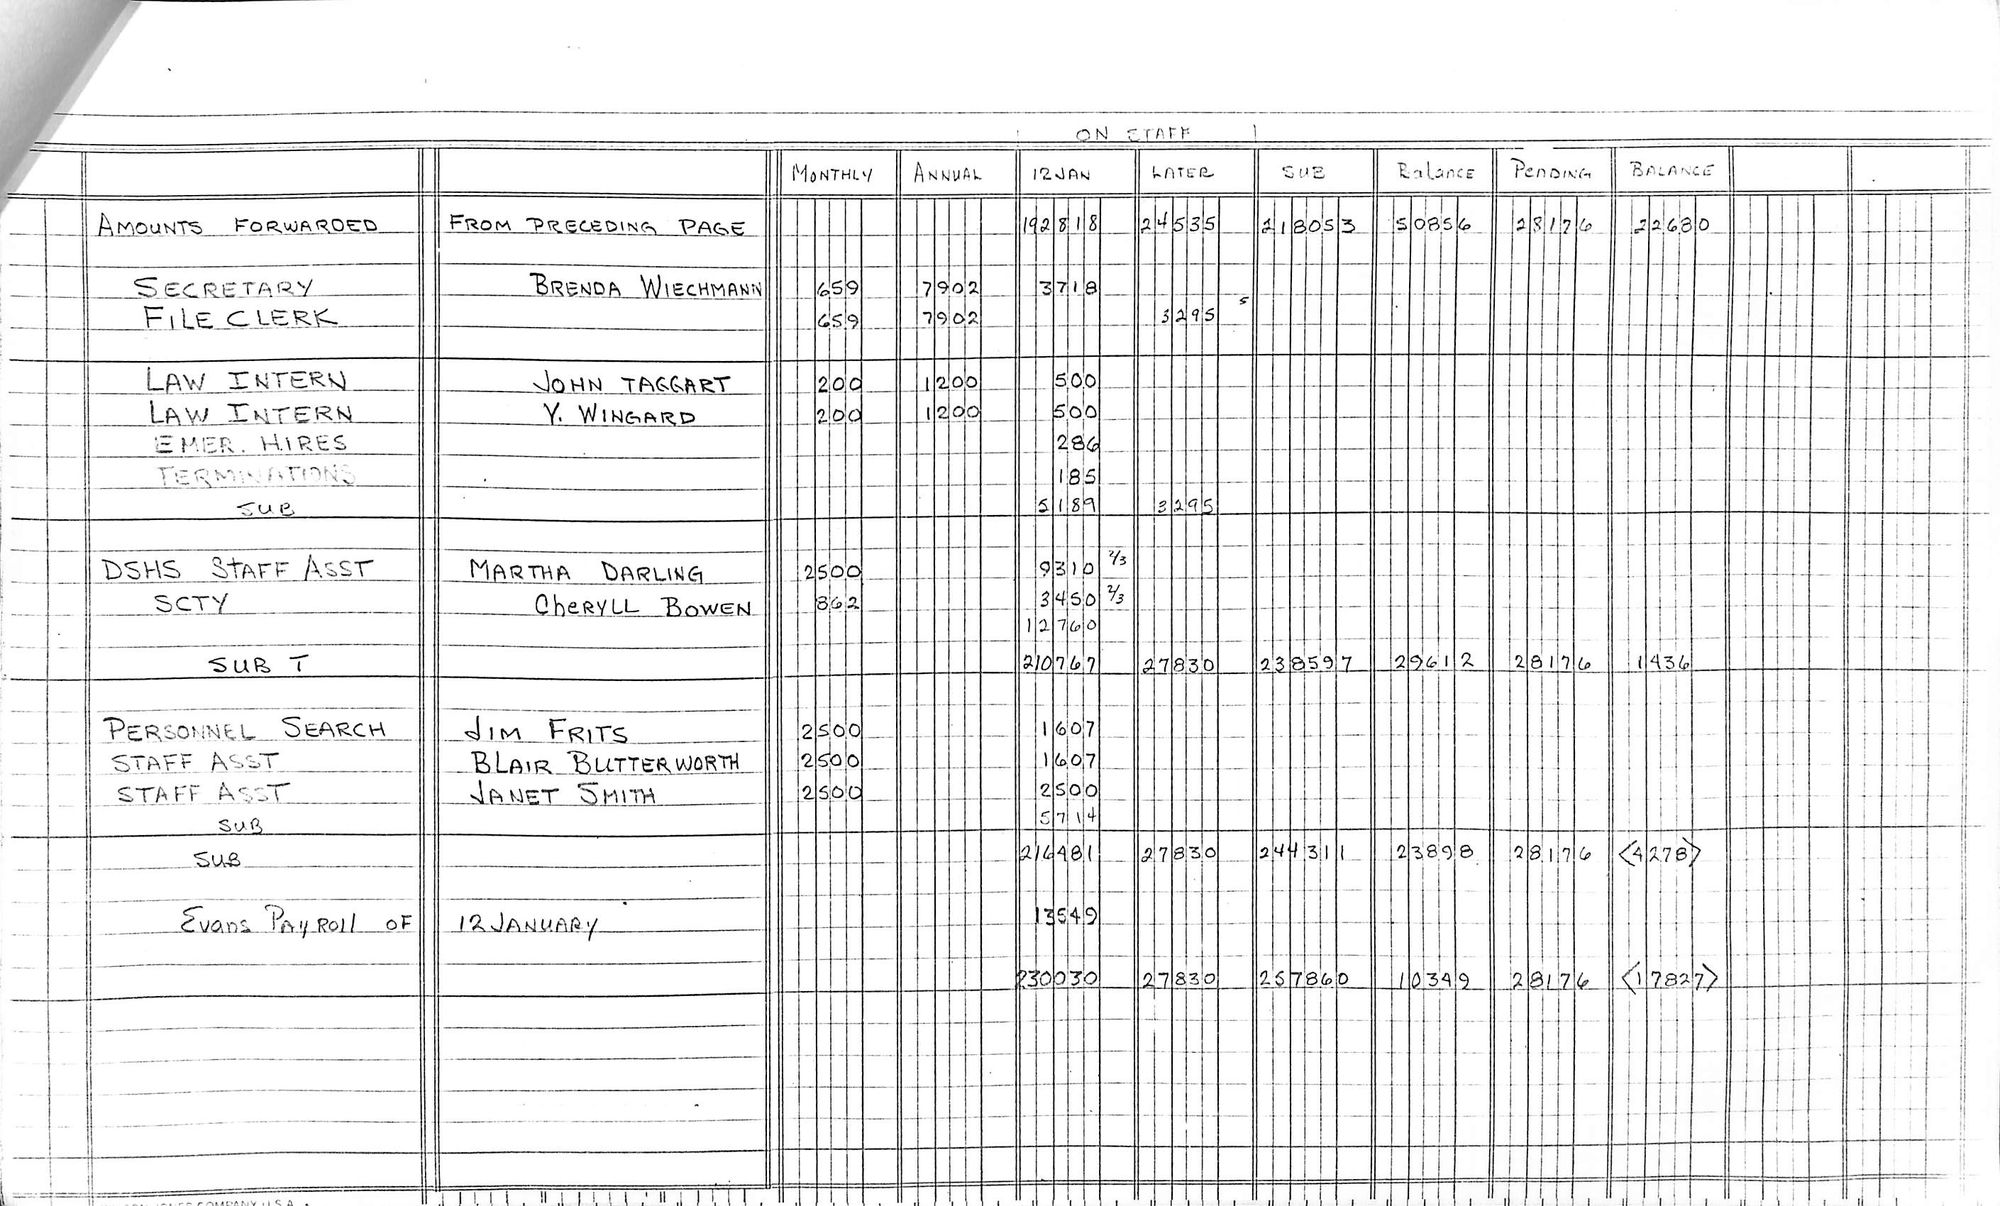 ON STAFF
MONTHLY ANNUAL 12JAN LATER SUB BALANCE PENDING BALANCE
AMOUNTS FORWARDED FROM PRECEDING PAGE 192818 24535 218053 50856 28176 22680
SECRETARY BRENDA WIECHMANN 659 7902 3718
FILE CLERK 659 7902 3295 5
LAW INTERN JOHN TAGGART 200 1200 500
LAW INTERN Y. WINGARD 200 1200 500
EMER. HIRES 286
TERMINATIONS 185
SUB 5189 3295
DSHS STAFF ASST MARTHA DARLING 2500 9310 2/3
SCTY CHERYLL BOWEN 862 3450 2/3
12760
SUB T 210767 27830 238597 29612 28176 1436
PERSONNEL SEARCH JIM FRITS 2500 1607
STAFF ASST BLAIR BUTTERWORTH 2500 1607
STAFF ASST JANET SMITH 2500 2500
SUB 5714
SUB 216481 27830 244311 23898 28176 <4278>
Evans PAYROLL OF 12 JANUARY 13549
230030 27830 257860 10349 28176 <17827>
COMPANY U.S.A.